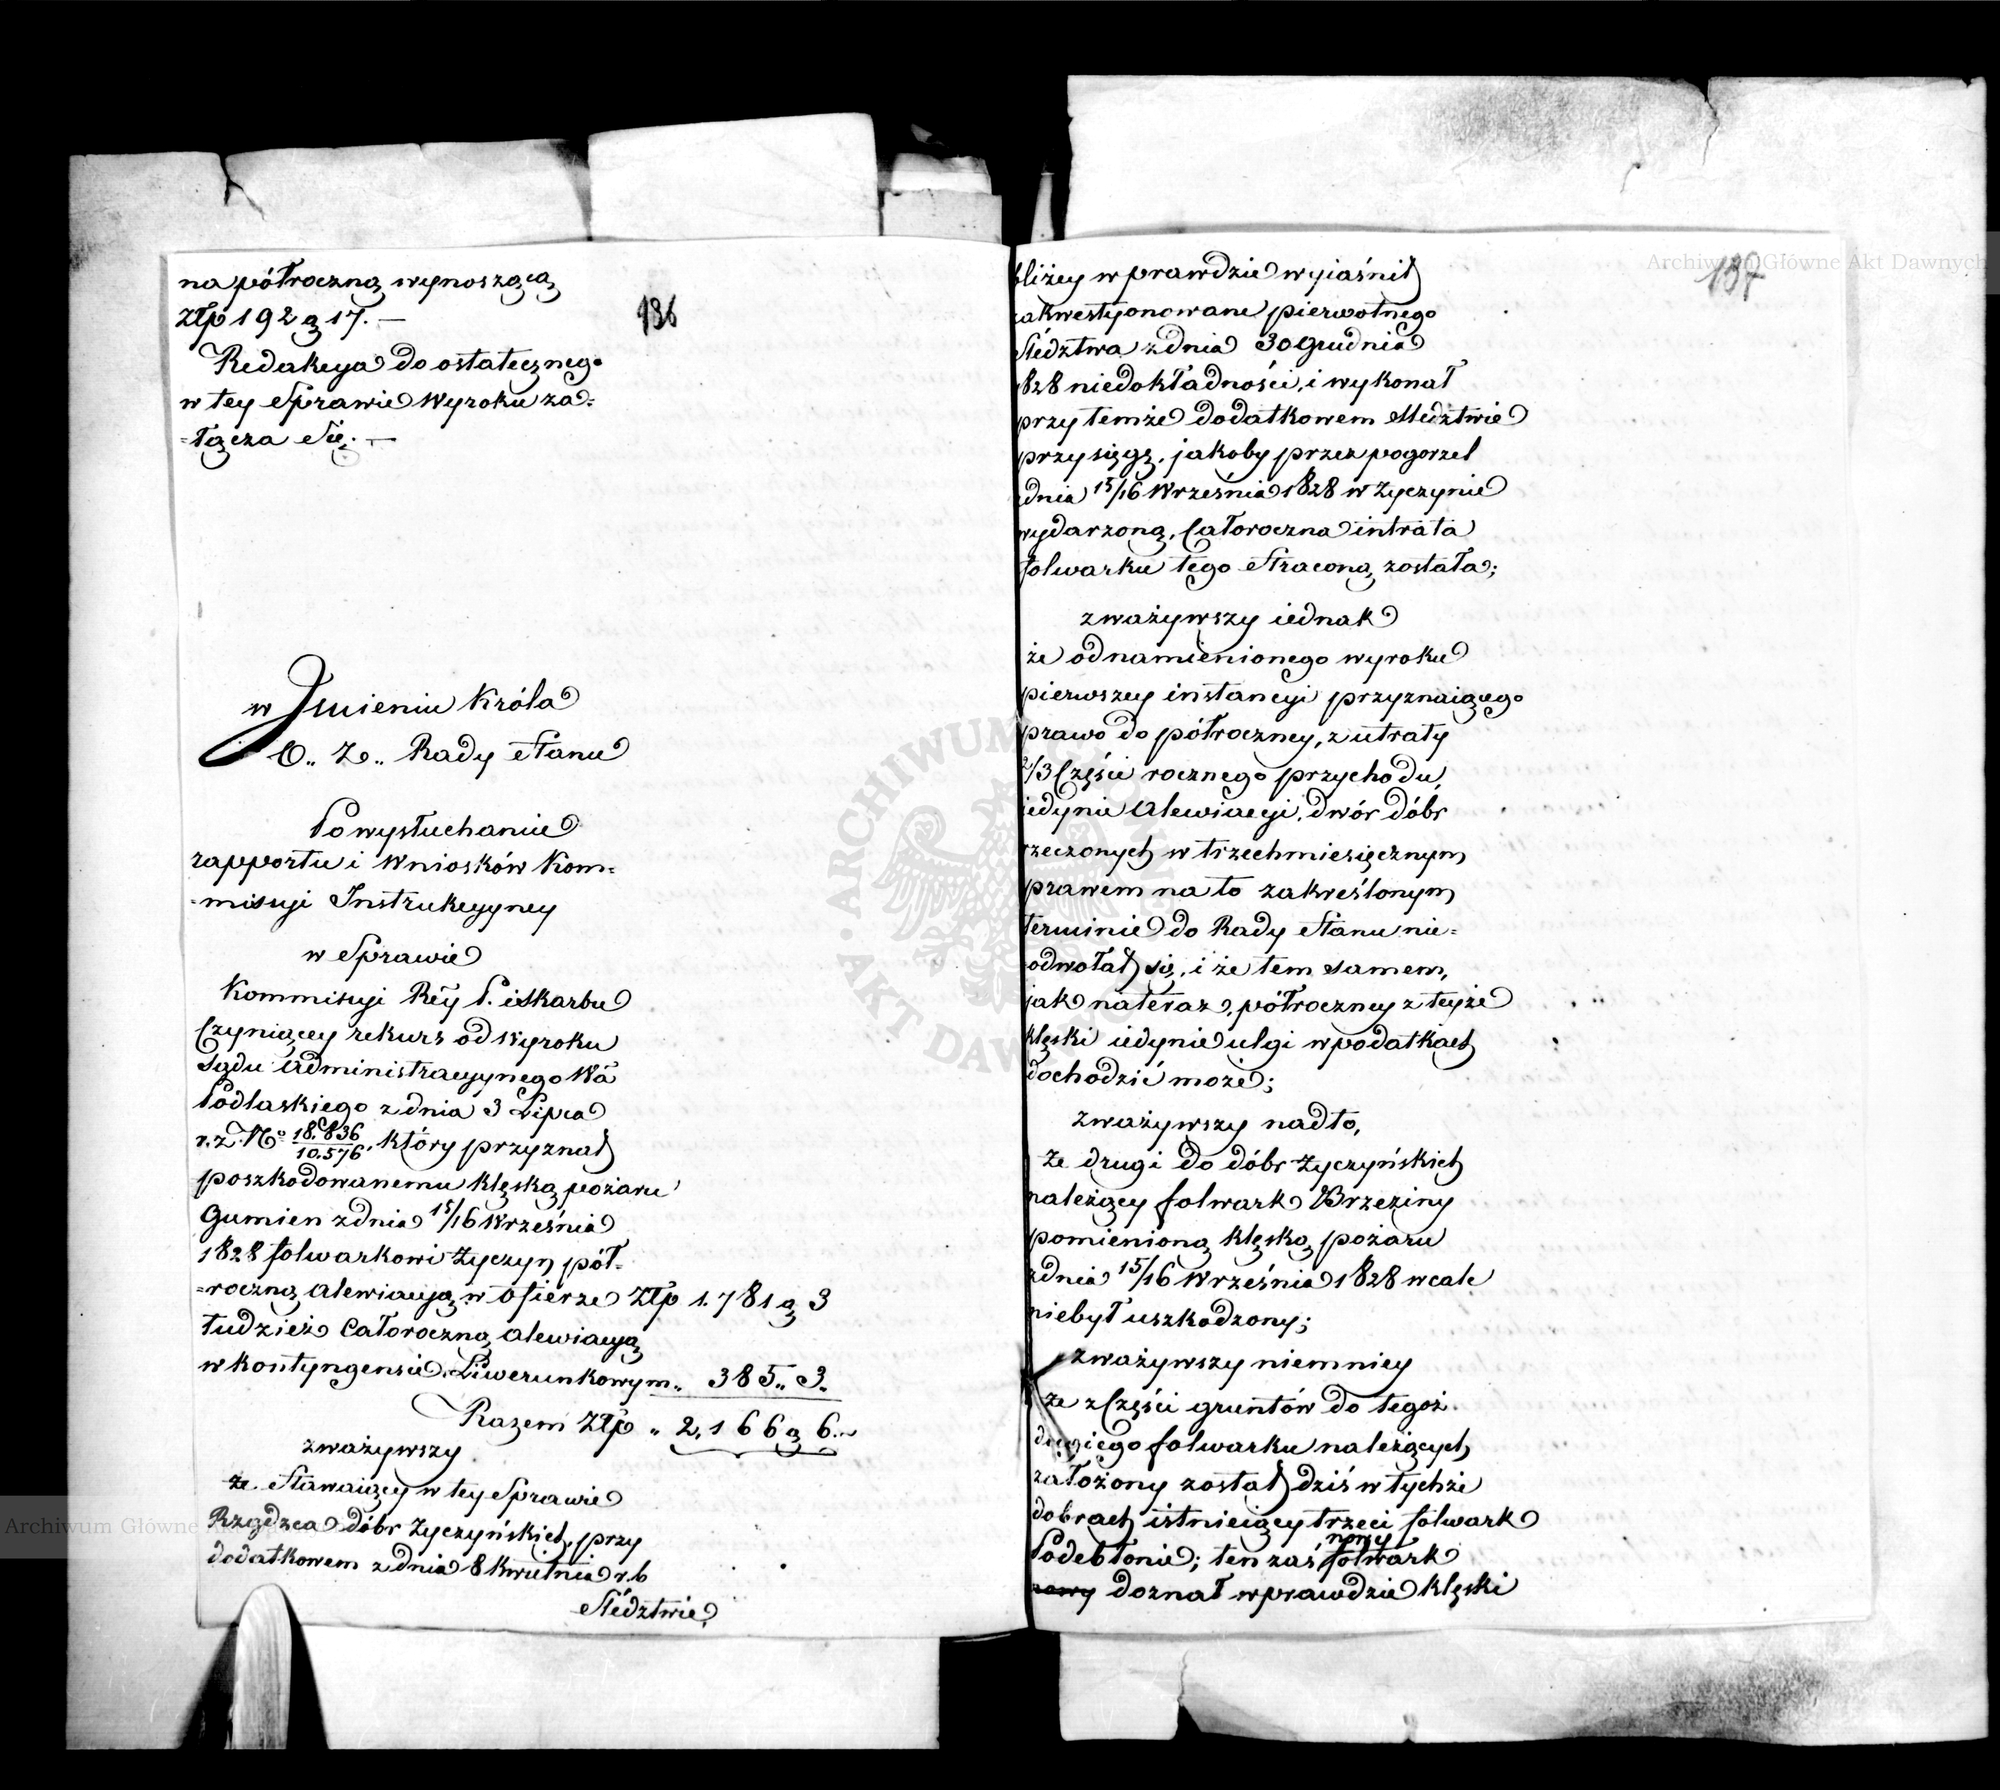 na półroczną wynoszącą
Złp 192 g 17. —
136
Redakcya do ostatecznego
w tey Sprawie Wyroku za=
=łącza się. —
w Imieniu Króla
O.. Z.. Rady Stanu
Po wysłuchaniu
rapportu i Wniosków Kom=
=missyi Instrukcyyney
w Sprawie
Kommissyi Rźy P. i Skarbu
Czyniącey rekurs od Wyroku
Sądu Administracyynego Wa
Podlaskiego z dnia 3 Lipca
r. z. No 18.836/10.576. który przyznał
poszkodowanemu klęską pożaru
Gumien z dnia 15/16 Września
1828 folwarkowi Życzyn pół=
=roczną alewiacyą w Ofierze Złp 1.781 g 3
tudzież Całoroczną alewiacyą
w kontyngensie Liwerunkowym „ 385 „ 3 „
Razem Złp „ 2,166 g 6 „
zważywszy
że Stawaiący w tey Sprawie
Rządzca dóbr Życzyńskich, przy
dodatkowem z dnia 8 Kwietnia r. b
Śledztwie,
137
bliżey wprawdzie wyiaśnił
zakwestyonowane pierwotnego
Śledztwa z dnia 30 Grudnia
1828 niedokładności, i wykonał
przy temże dodatkowem Śledztwie
przysięgę, jakoby przez pogorzel
dnia 15/16 Września 1828 w Życzynie
wydarzoną, Całoroczna intrata
folwarku tego Straconą została;
zważywszy iednak
że od namienionego wyroku
pierwszey instancyi przyznaiącego
prawo do półroczney, z utraty
2/3 Części rocznego przychodu,
iedynie alewiacyi, dwór dóbr
rzeczonych w trzechmiesięcznym
prawem na to zakreślonym
terminie do Rady Stanu nie=
odwołał się, i że tem samem,
jak na teraz, półroczney z teyże
klęski iedynie ulgi w podatkach
dochodzić może;
zważywszy nadto,
że drugi do dóbr Życzyńskich
należący folwark Brzeziny
pomienioną klęską pożaru
z dnia 15/16 Września 1828 wcale
niebył uszkodzony;
zważywszy niemniey
że z Części gruntów do tegoż
drugiego folwarku należących
założony został dziś w tychże
dobrach istnieiący trzeci folwark
nowy
Podebłonie; ten zaś folwark
nowy doznał wprawdzie klęski
Archiwum Główne Akt Dawnych
ARCHIWUM GŁÓWNE · AKT DAWNYCH ·
Archiwum Główne Akt Dawnych